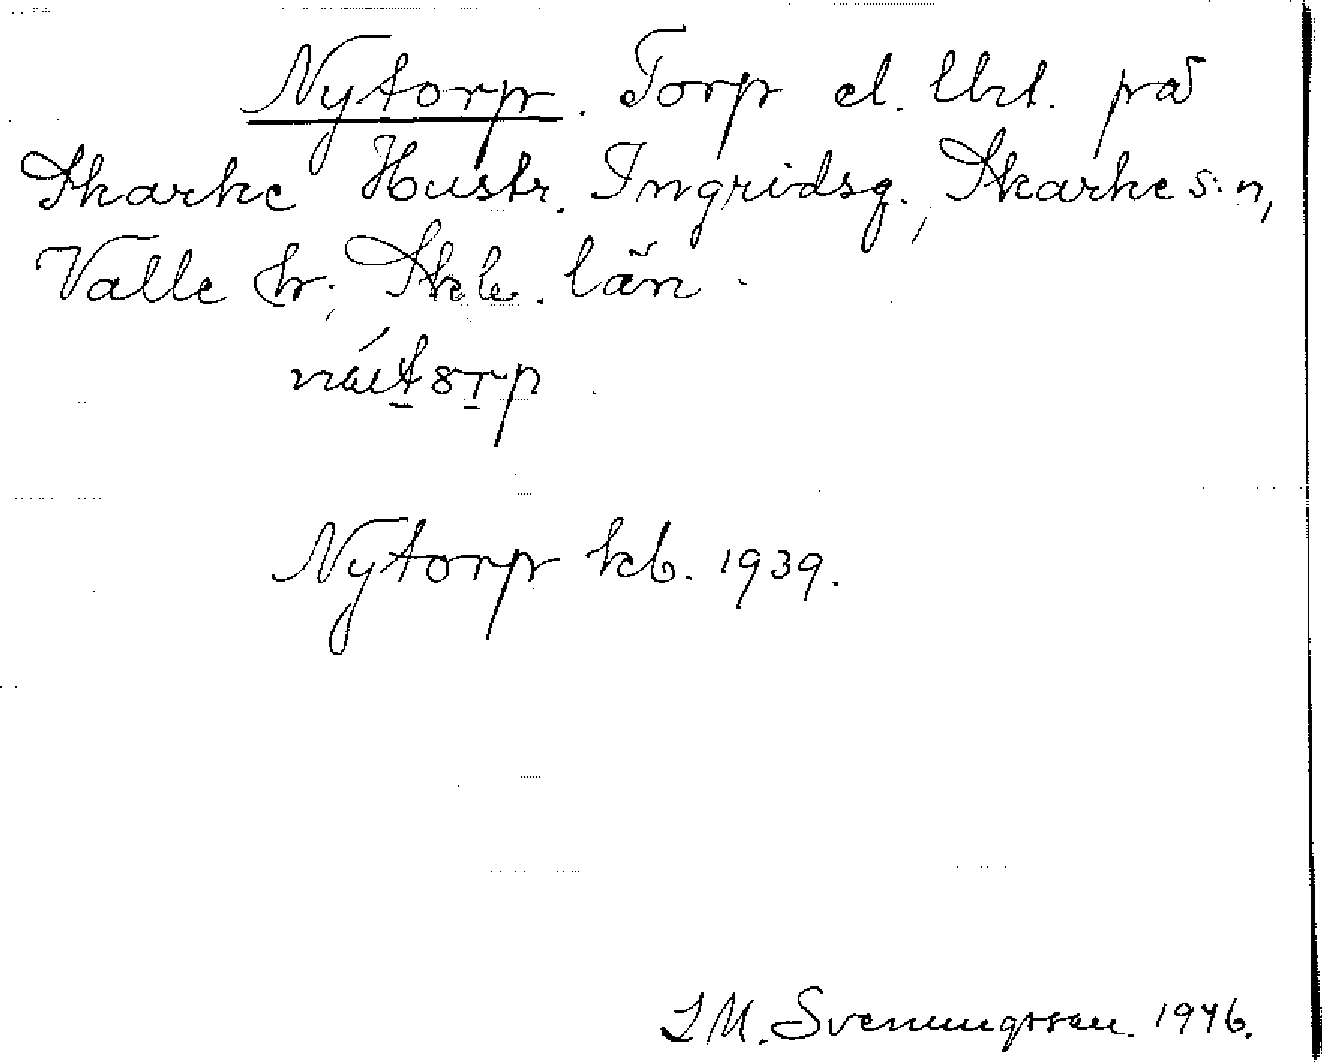 Nytorp. Torp el. lht. på
Skarke Hustr. Ingridsg., Skarke s:n,
Valle hr., Skb. län.
Nytorp kb. 1939.
S M. Svenungsson. 1946.